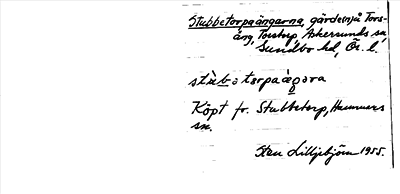 Stubbetorpaängarna, gärden på Tors-
äng, Torstorp, Askersunds sn,
Sundbo hd, Ör. l.
stùbətorpaäŋara
Köpt fr. Stubbetorp, Hammars
sn.
Sten Lilljebjörn 1955.